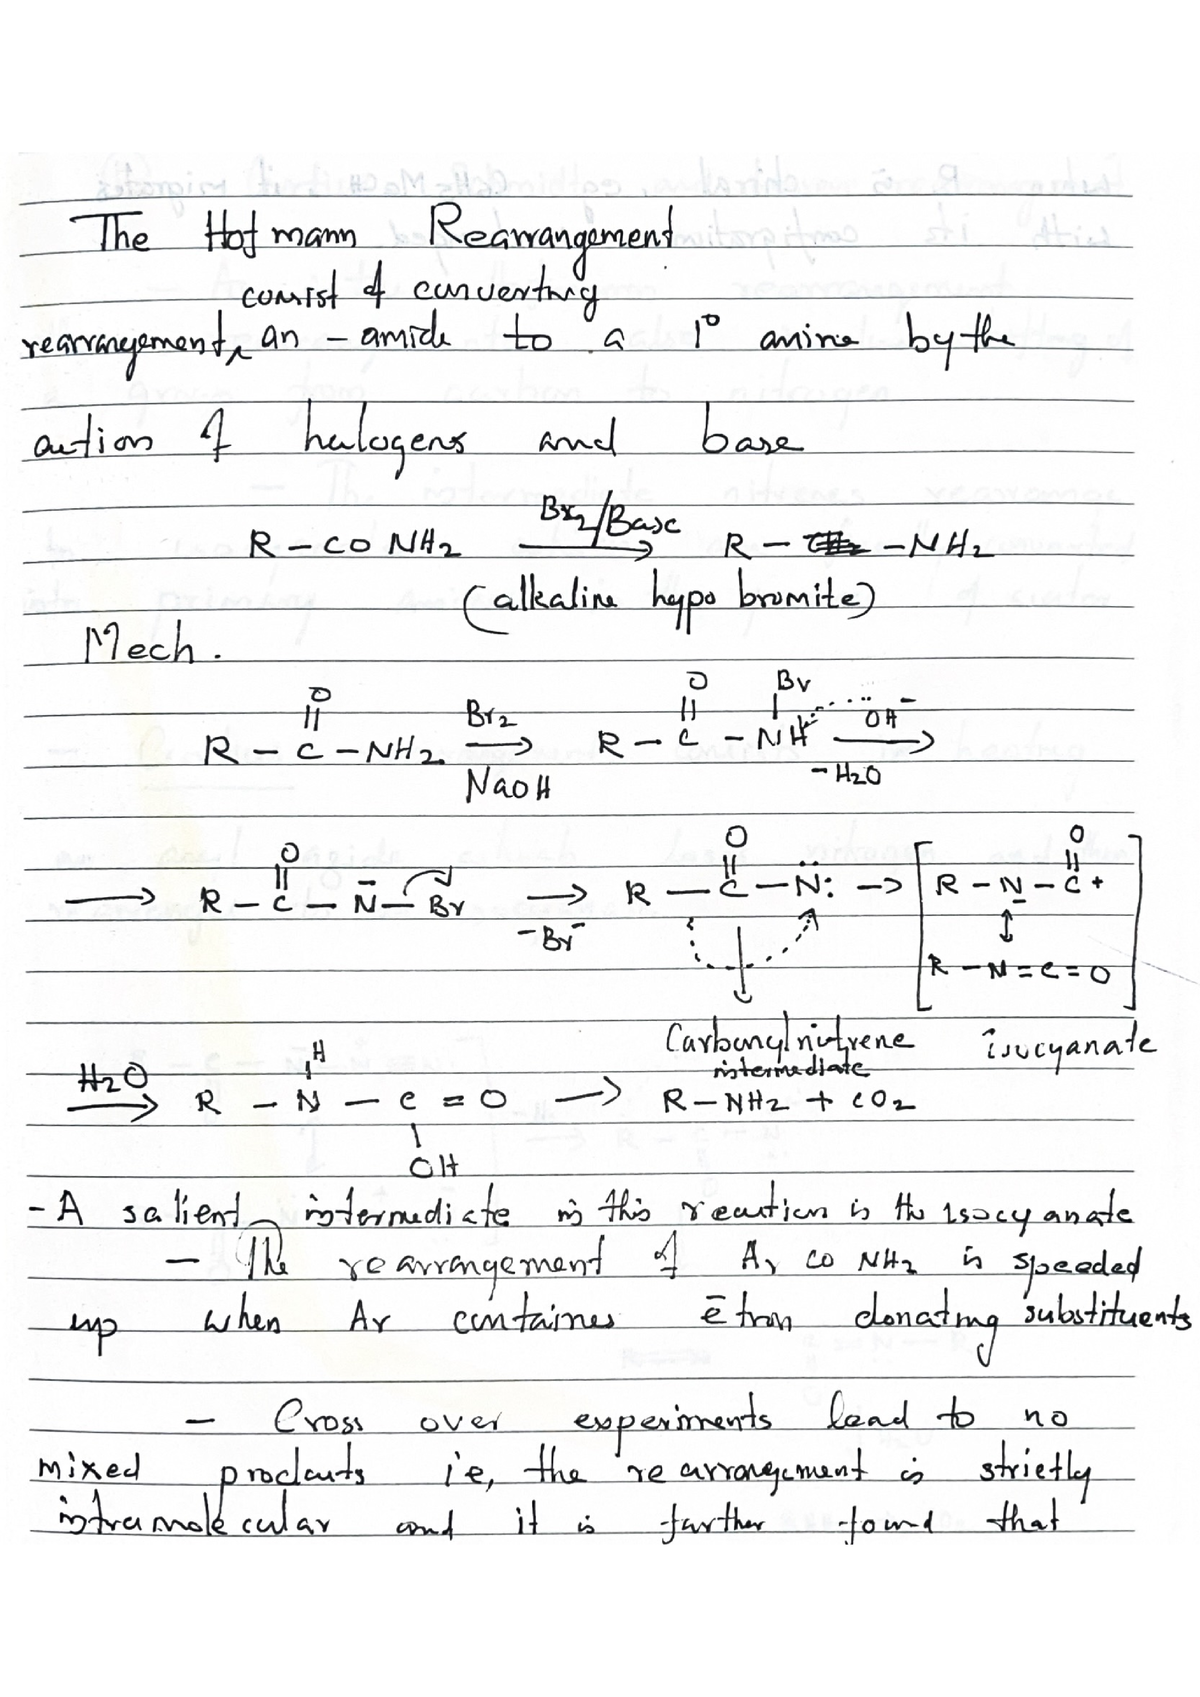 The Hofmann Rearrangement
consist of converting
rearrangement, an - amide to a 1° amine by the
action of halogens and base
R - CO NH2 Br2/Base → R - -NH2
(alkaline hypo bromite)
Mech.
O O Br
|| || | OH-
R - C - NH2 Br2 → R - C - NH →
NaOH -H2O
O O O
|| || ||
→ R - C - N̄ - Br → R - C - N̈: → [ R - N̲ - C+
-Br- ↕
R - N = C = O ]
Carbonylnitrene isocyanate
intermediate
H2O → R - N - C = O → R-NH2 + CO2
H
OH
- A salient intermediate in this reaction is the isocyanate
- The rearrangement of Ar CO NH2 is speeded
up when Ar containes ētron donating substituents
- Cross over experiments lead to no
mixed products i'e, the rearrangement is strictly
intramolecular and it is further found that